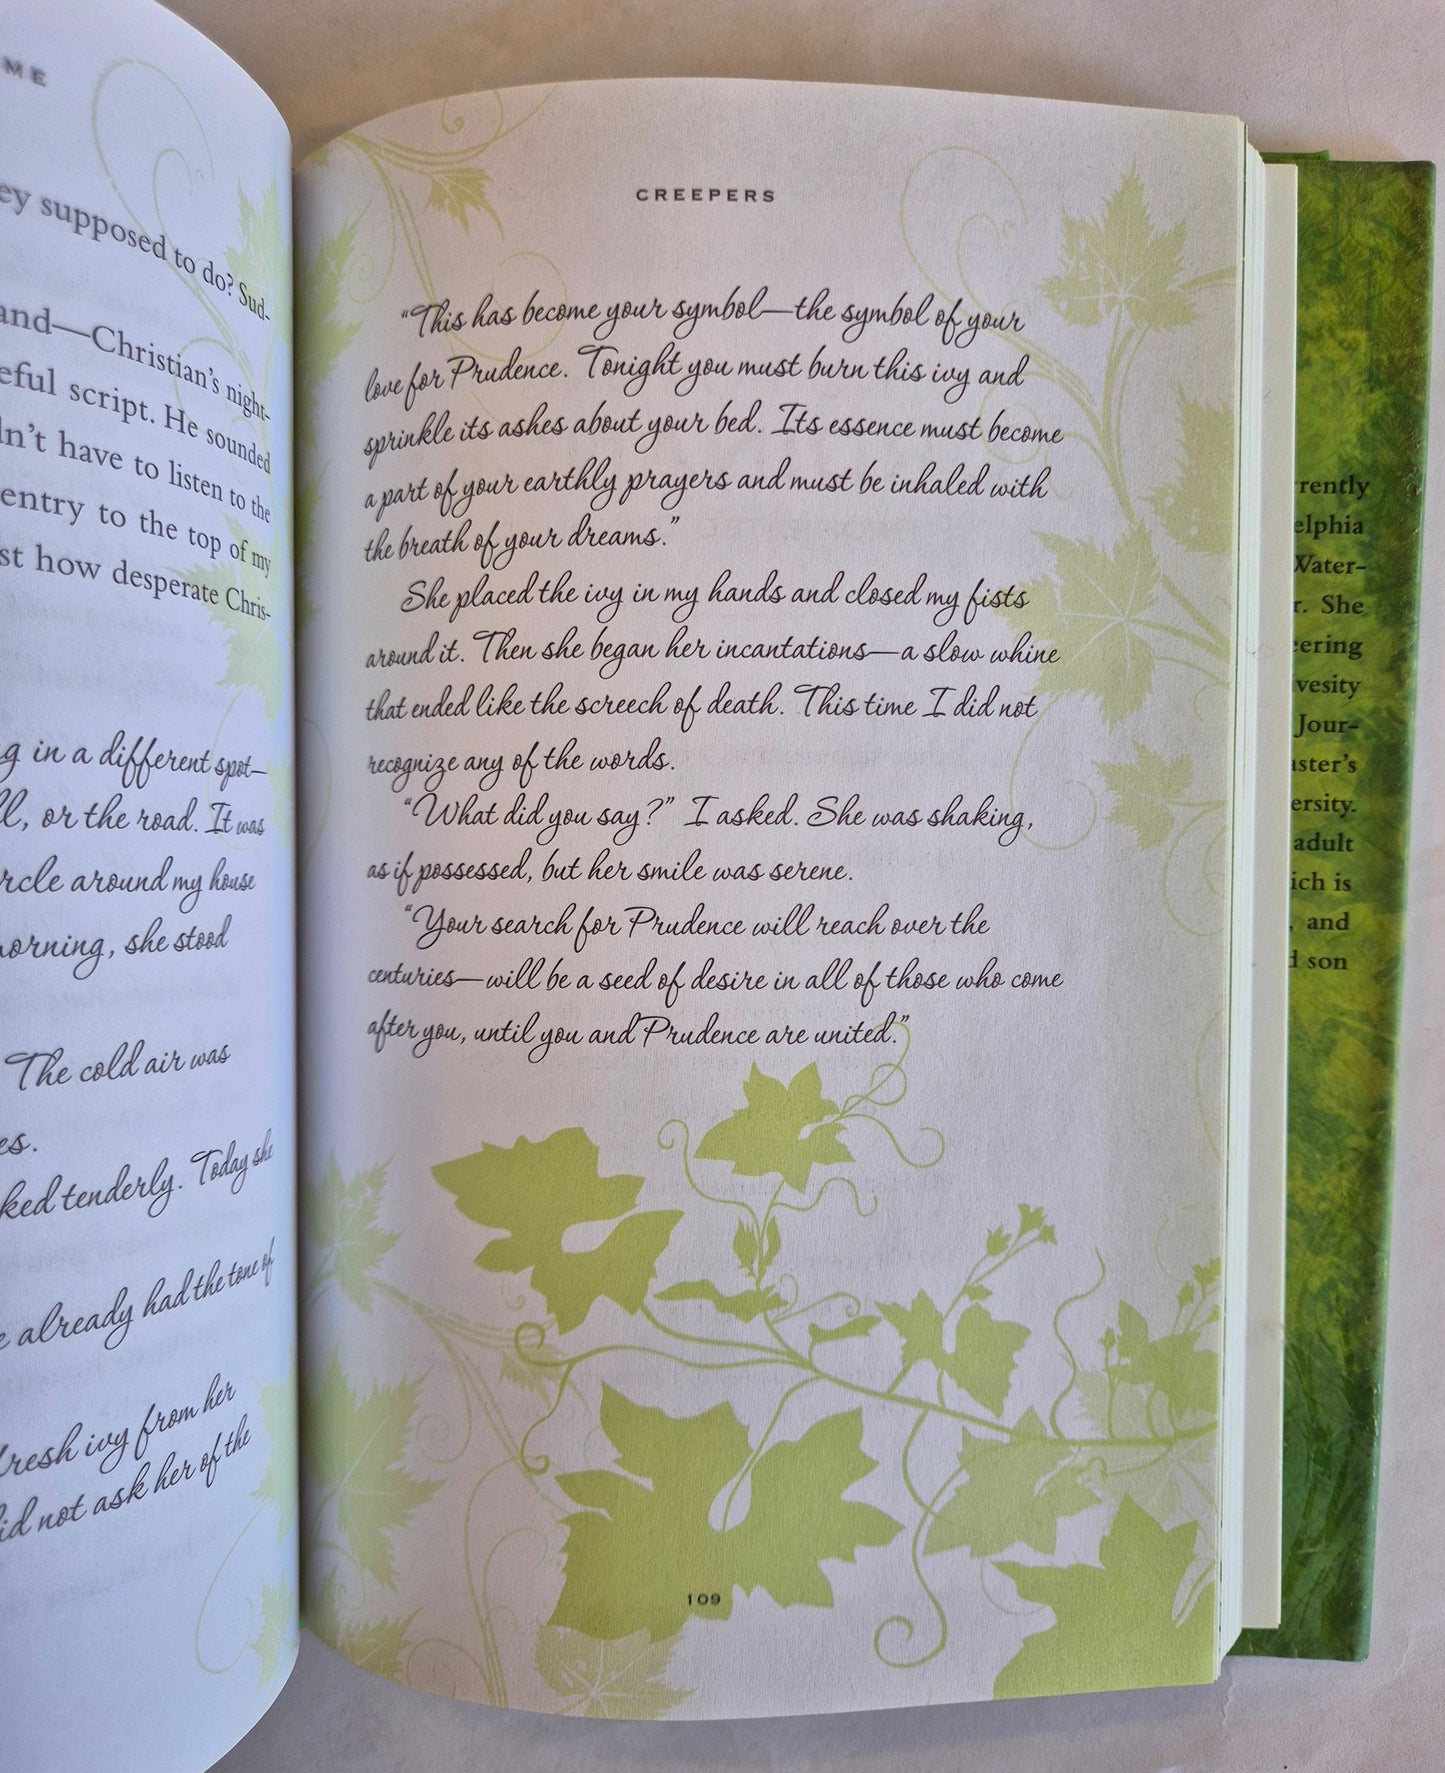 ME
supposed to do? Sud-
and—Christian's night-
script. He sounded
have to listen to the
entry to the top of my
how desperate Chris-
in a different spot—
or the road. It was
around my house
she stood
The cold air was
tenderly. Today she
already had the tone of
ivy from her
not ask her of the
CREEPERS
"This has become your symbol—the symbol of your
love for Prudence. Tonight you must burn this ivy and
sprinkle its ashes about your bed. Its essence must become
a part of your earthly prayers and must be inhaled with
the breath of your dreams."
She placed the ivy in my hands and closed my fists
around it. Then she began her incantations—a slow whine
that ended like the screech of death. This time I did not
recognize any of the words.
"What did you say?" I asked. She was shaking,
as if possessed, but her smile was serene.
"Your search for Prudence will reach over the
centuries—will be a seed of desire in all of those who come
after you, until you and Prudence are united."
109
rrently
elphia
Water-
r. She
eering
ivesity
Jour-
aster's
ersity.
adult
ich is
, and
d son